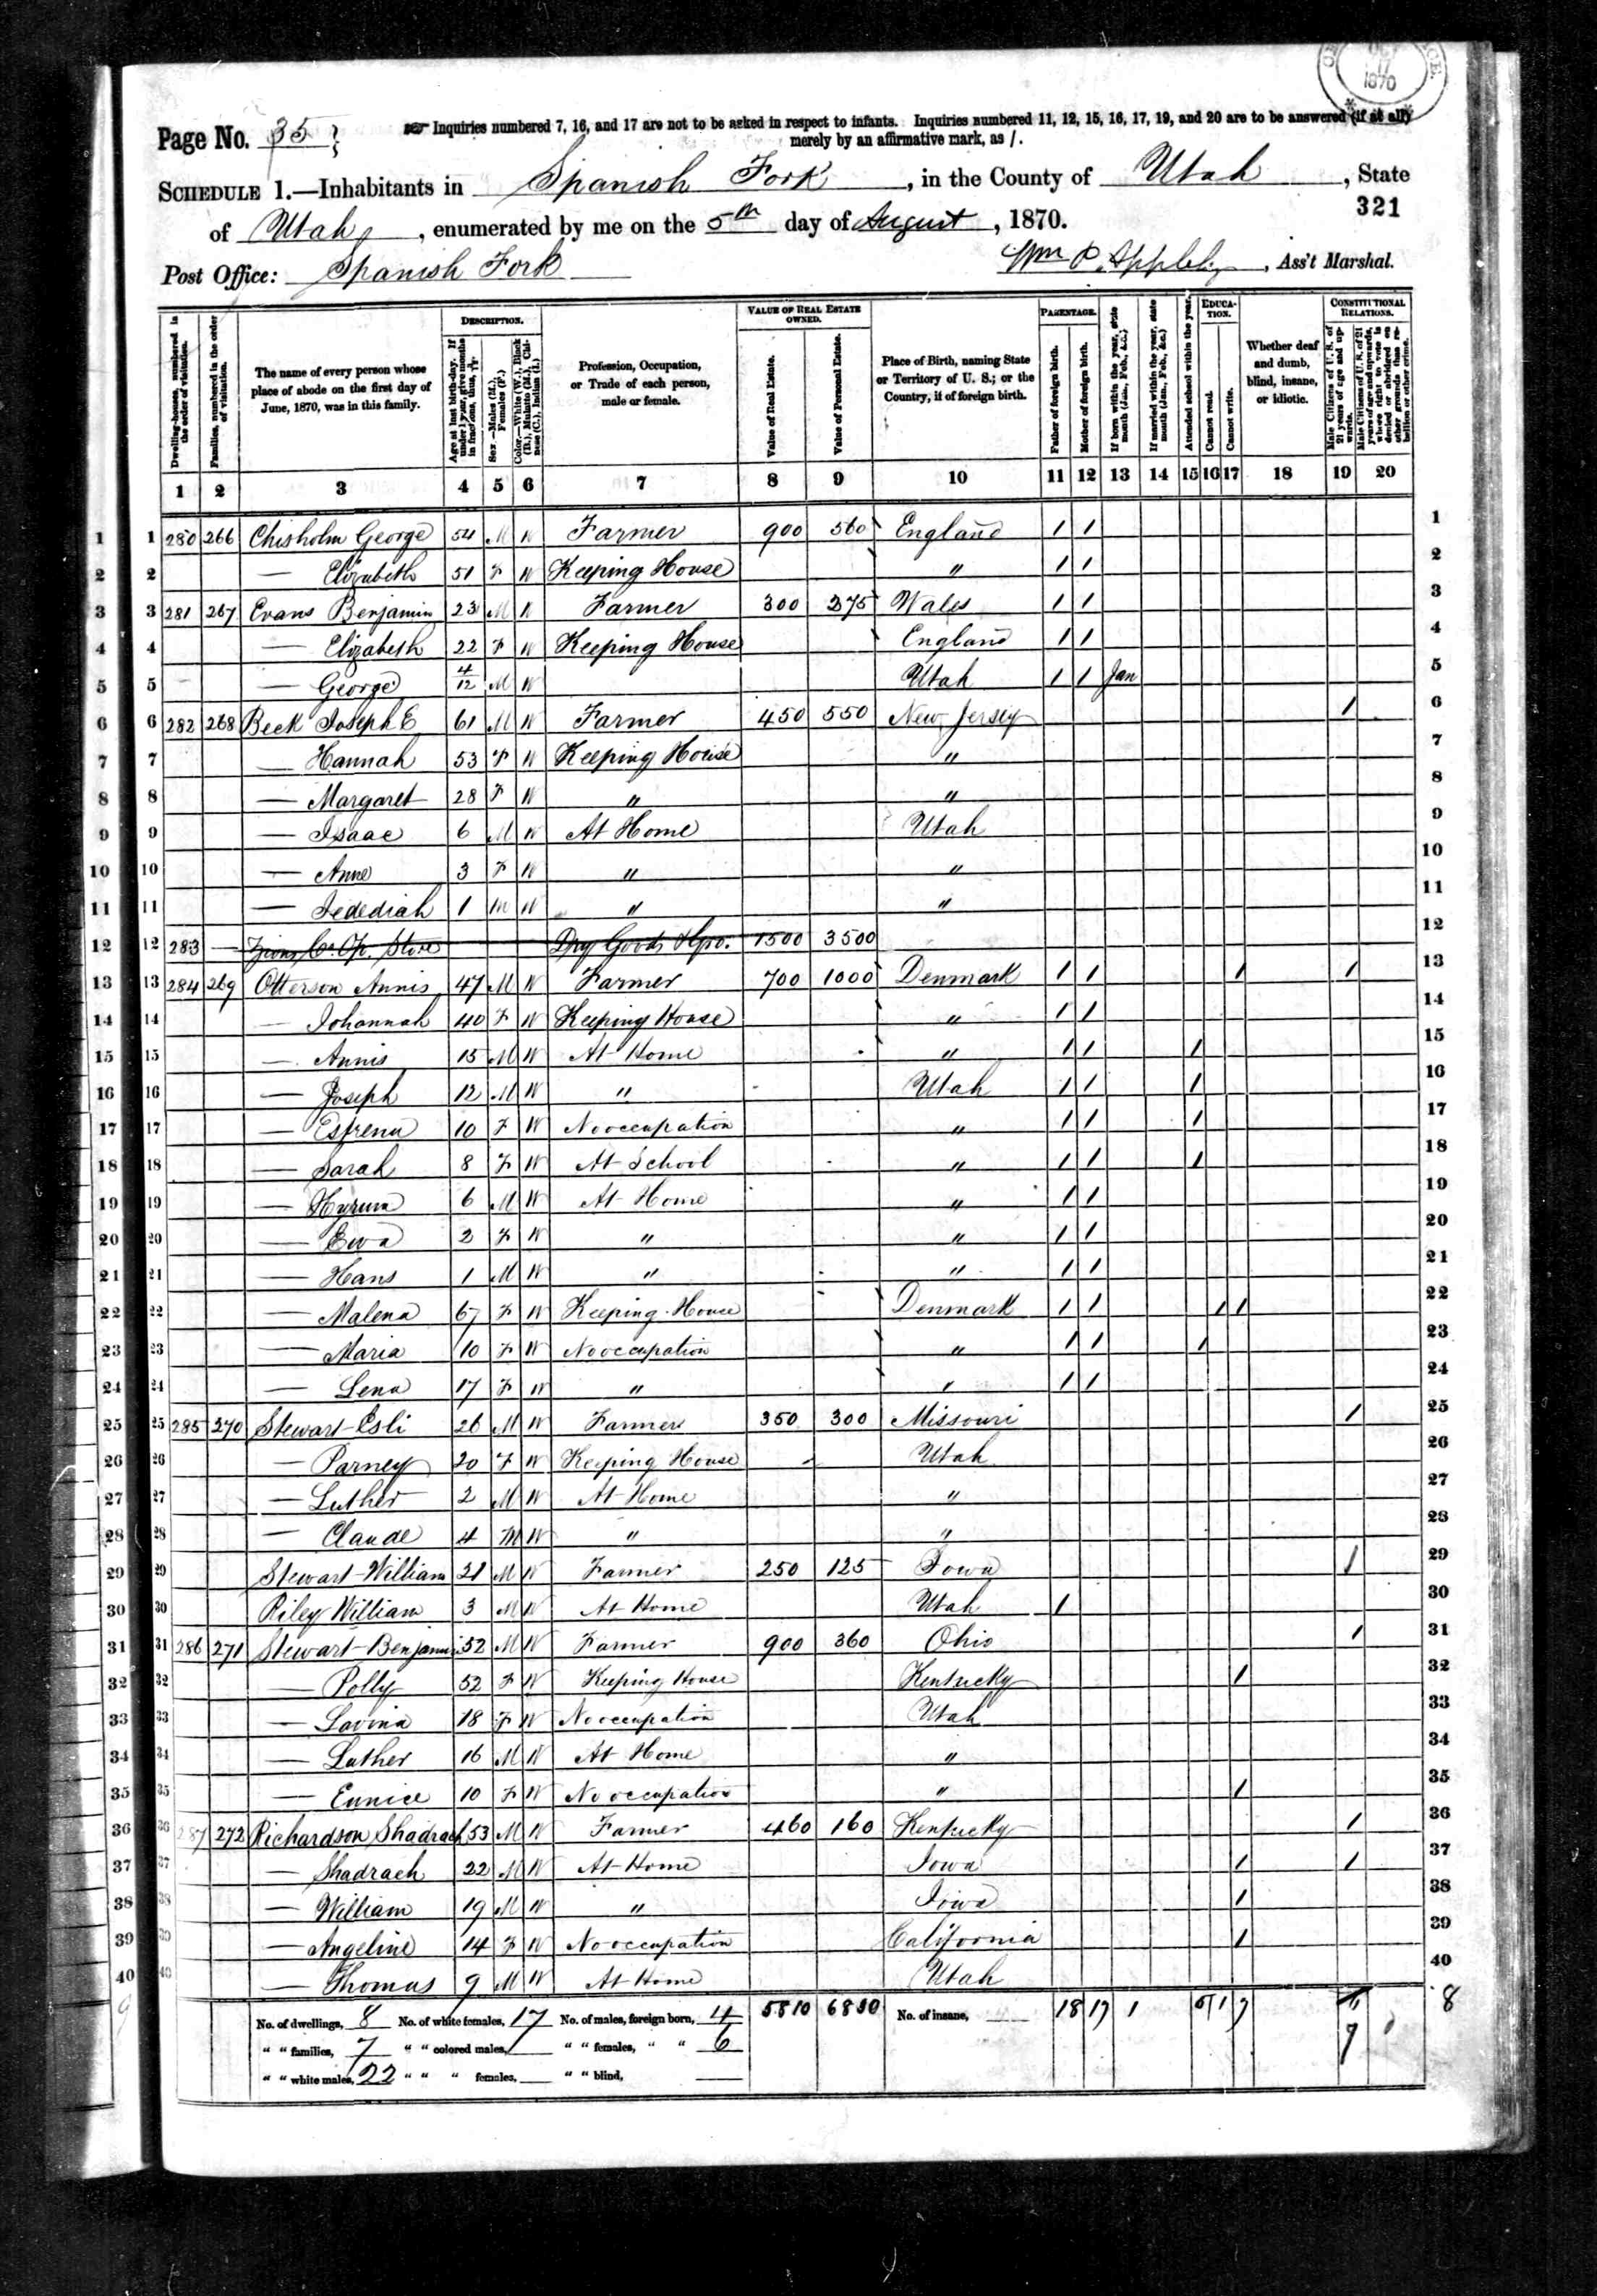 OCT 17 1870
Page No. 35
Inquiries numbered 7, 16, and 17 are not to be asked in respect to infants. Inquiries numbered 11, 12, 15, 16, 17, 19, and 20 are to be answered (if at all)
merely by an affirmative mark, as /.
SCHEDULE 1.—Inhabitants in Spanish Fork, in the County of Utah, State
321
of Utah, enumerated by me on the 5th day of August, 1870.
Post Office: Spanish Fork Wm P. Appleby, Ass't Marshal.
Dwelling-houses, numbered in the order of visitation.
Families, numbered in the order of visitation.
The name of every person whose place of abode on the first day of June, 1870, was in this family.
DESCRIPTION.
Age at last birth-day. If under 1 year, give months in fractions, thus,
Sex.—Males (M.), Females (F.)
Color.—White (W.), Black (B.), Mulatto (M.), Chinese (C.), Indian (I.)
Profession, Occupation, or Trade of each person, male or female.
VALUE OF REAL ESTATE OWNED.
Value of Real Estate.
Value of Personal Estate.
Place of Birth, naming State or Territory of U. S.; or the Country, if of foreign birth.
PARENTAGE.
Father of foreign birth.
Mother of foreign birth.
If born within the year, state month (Jan., Feb., &c.)
If married within the year, state month (Jan., Feb., &c.)
Attended school within the year.
EDUCATION.
Cannot read.
Cannot write.
Whether deaf and dumb, blind, insane, or idiotic.
CONSTITUTIONAL RELATIONS.
Male Citizens of U. S. of 21 years of age and upwards.
Male Citizens of U. S. of 21 years of age and upwards, whose right to vote is denied or abridged on other grounds than rebellion or other crime.
1 2 3 4 5 6 7 8 9 10 11 12 13 14 15 16 17 18 19 20
1 1 280 266 Chisholm George 54 M W Farmer 900 560 England 1 1 1
2 2 — Elizabeth 51 F W Keeping House " 1 1 2
3 3 281 267 Evans Benjamin 23 M W Farmer 300 375 Wales 1 1 3
4 4 — Elizabeth 22 F W Keeping House England 1 1 4
5 5 — George 4/12 M W Utah 1 1 Jan 5
6 6 282 268 Beck Joseph E 61 M W Farmer 450 550 New Jersey 1 6
7 7 — Hannah 53 F W Keeping House " 7
8 8 — Margaret 28 F W " " 8
9 9 — Isaac 6 M W At Home Utah 9
10 10 — Anne 3 F W " " 10
11 11 — Jedediah 1 M W " " 11
12 12 283 — Zions Co. Op. Store Dry Goods & Gro. 1500 3500 12
13 13 284 269 Otterson Annis 47 M W Farmer 700 1000 Denmark 1 1 1 1 13
14 14 — Johannah 40 F W Keeping House " 1 1 14
15 15 — Annis 15 M W At Home " 1 1 1 15
16 16 — Joseph 12 M W " Utah 1 1 1 16
17 17 — 10 F W No occupation " 1 1 1 17
18 18 — Sarah 8 F W At School " 1 1 1 18
19 19 — Hyrum 6 M W At Home " 1 1 19
20 20 — Eva 2 F W " " 1 1 20
21 21 — Hans 1 M W " " 1 1 21
22 22 — Malena 67 F W Keeping House Denmark 1 1 1 1 22
23 23 — Maria 10 F W No occupation " 1 1 1 23
24 24 — Lena 17 F W " " 1 1 24
25 25 285 270 Stewart Esli 26 M W Farmer 350 300 Missouri 1 25
26 26 — Parney 20 F W Keeping House Utah 26
27 27 — Luther 2 M W At Home " 27
28 28 — Claude 4 M W " " 28
29 29 Stewart William 21 M W Farmer 250 125 Iowa 1 29
30 30 Riley William 3 M W At Home Utah 1 30
31 31 286 271 Stewart Benjamin 52 M W Farmer 900 360 Ohio 1 31
32 32 — Polly 52 F W Keeping House Kentucky 1 32
33 33 — Lovina 18 F W No occupation Utah 33
34 34 — Luther 16 M W At Home " 34
35 35 — Eunice 10 F W No occupation " 1 35
36 36 287 272 Richardson Shadrach 53 M W Farmer 460 160 Kentucky 1 36
37 37 — Shadrach 22 M W At Home Iowa 1 1 37
38 38 — William 19 M W " Iowa 1 38
39 39 — Angeline 14 F W No occupation California 1 39
40 40 — Thomas 9 M W At Home Utah 40
No. of dwellings, 8 No. of white females, 17 No. of males, foreign born, 4 5810 6830 No. of insane, 18 17 1 6 1 7 8
" " families, 7 " " colored males, " " females, " " 6 9
" " white males, 22 " " " females, " " blind,